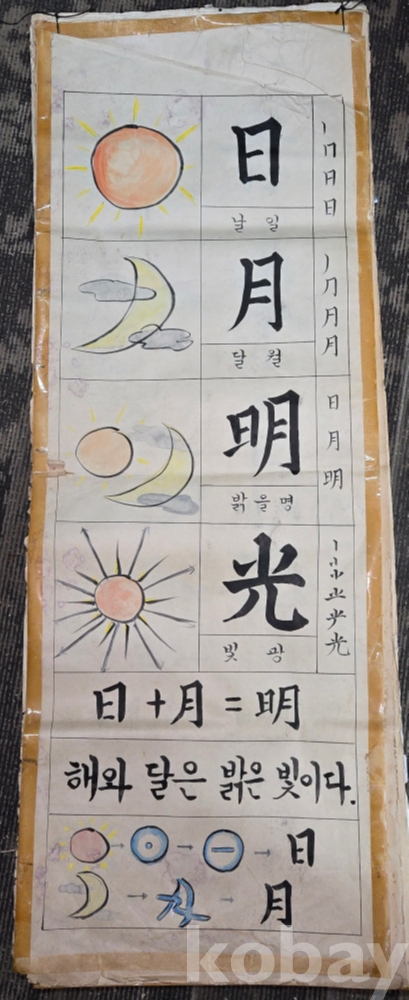 日
날 일
丨 冂 日 日
月
달 월
丿 ⺆ 月 月
明
밝을 명
日 月 明
光
빛 광
光
日 + 月 = 明
해와 달은 밝은 빛이다.
→ → → 日
→ → 月
kobay